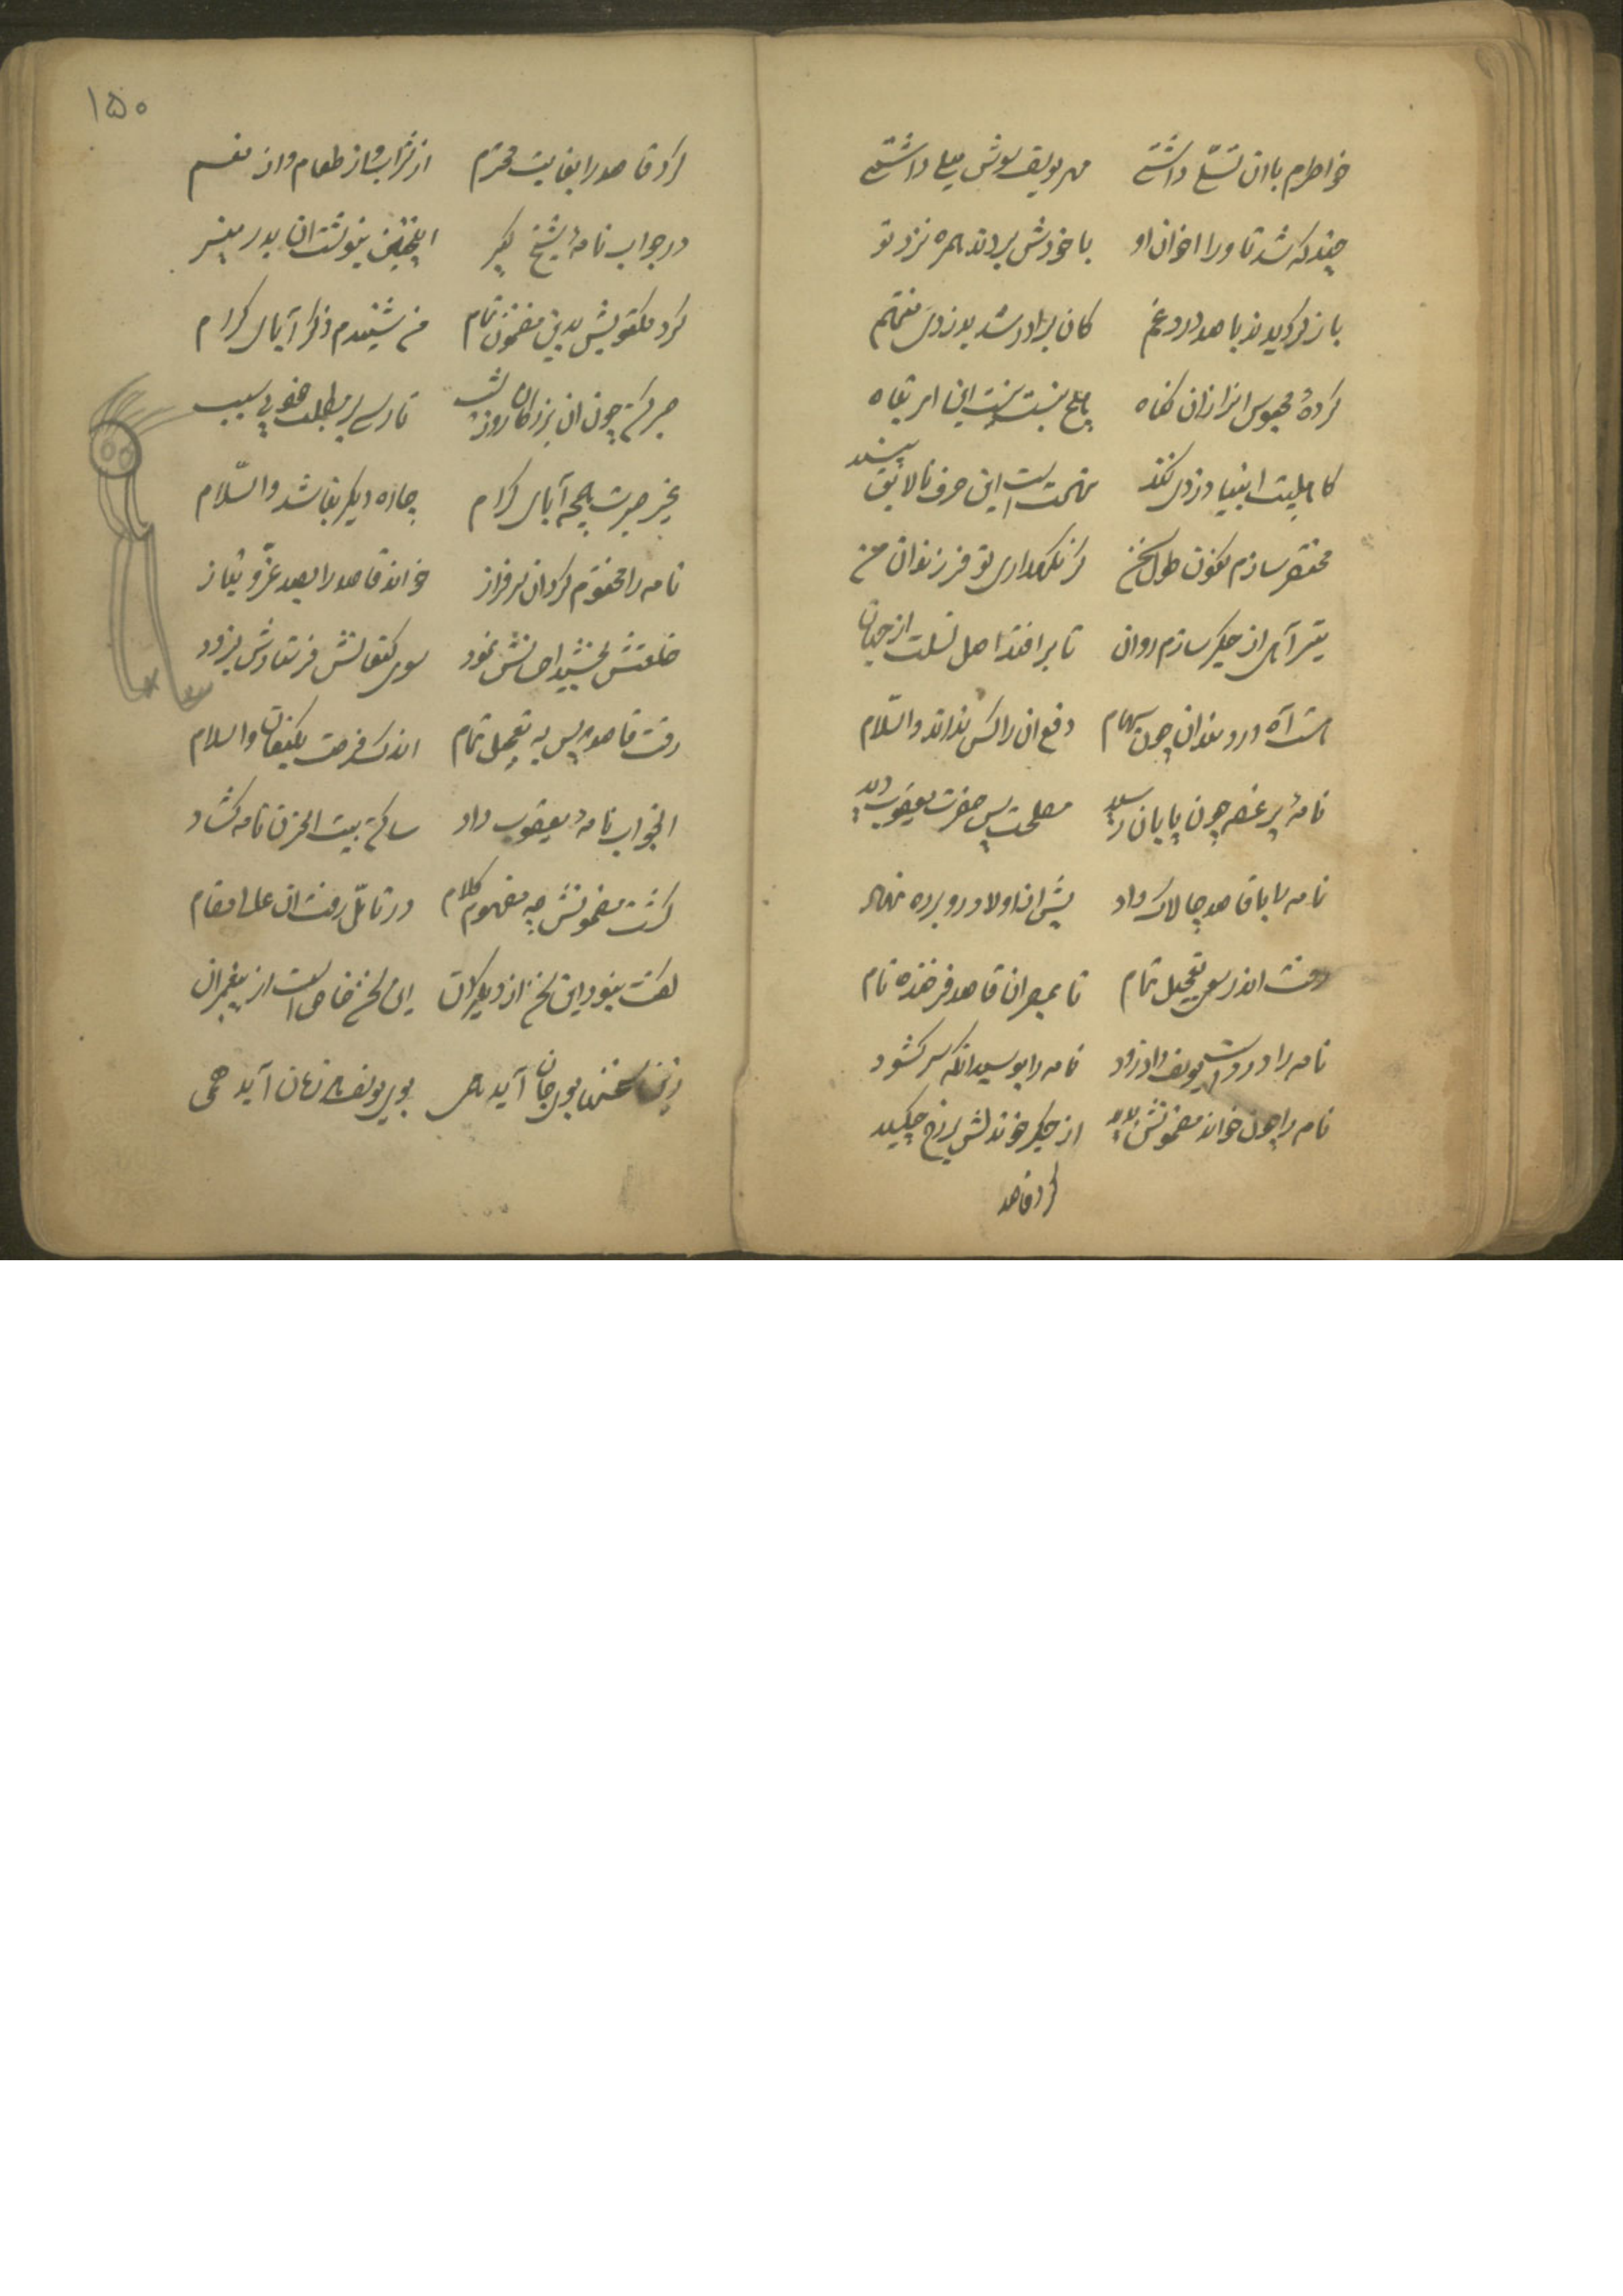 خواطرم با ان تسلّی داشتی مهر یوسف سوش میلی داشتی
چند که شد تا ورا اخوان او با خودش بردند همره نزد تو
باز گردیدند با صد درد و غم کان برادر شد بدزدی متهم
کردهٔ محبوس او را زان کناه
کاهلبیت انبیا دزدی نکند تهمت است این حرف نالایق پسند
مختصر سازم کنون طول سخن کر نکهداری تو فرزندان من
تیر آهی از جکر سازم روان تا بر افتد اصل نسلت از جهان
هست آه دردمندان چون سهام دفع ان را کس نداند والسّلام
نامهٔ پر غصه چون پایان رسید مصلحت پس حضرت یعقوب دید
نامه را با قاصد چالاک داد پیش از اولاد رو برده نهاد
رفت اندر سعی تعجیل تمام تا بمصر ان قاصد فرخنده نام
نامه را در دست یوسف داد زود نامه را بوسید انکه سر کشود
نامه را چون خواند مضمونش بدید از جکر خون دلش بر رخ چکید
کرد قاصد
۱۵۰
کرد قاصد را بغایت محترم از شراب و از طعام و از نعم
در جواب نامهٔ شیخ کبیر اینچنین بنوشت ان بدر منیر
کرد مکتوبش بدین مضمون تمام من شنیدم ذکر آبای کرام
صبر کن چون ان بزرکان روز و شب تا رسی بر مطلب خود بی سبب
غیر صبرت همچه آبای کرام چارهٔ دیکر نباشد والسّلام
نامه را مختوم کرد ان سرفراز خواند قاصد را بصد عزّ و نیاز
خلعتش بخشید احسانش نمود سوی کنعانش فرستادش بزود
رفت قاصد پس به تعجیل تمام اندک فرصت بکنعان والسلام
انجواب نامه یعقوب داد ساکن بیت الحزن نامه کشاد
کشت مضمونش چه مفهوم کلام در تامّل رفت ان عالی مقام
کفت نبود این سخن از دیکران این سخن خاص است از پیغمبران
زین سخنها بوی جان آید همی بوی یوسف هر زمان آید همی